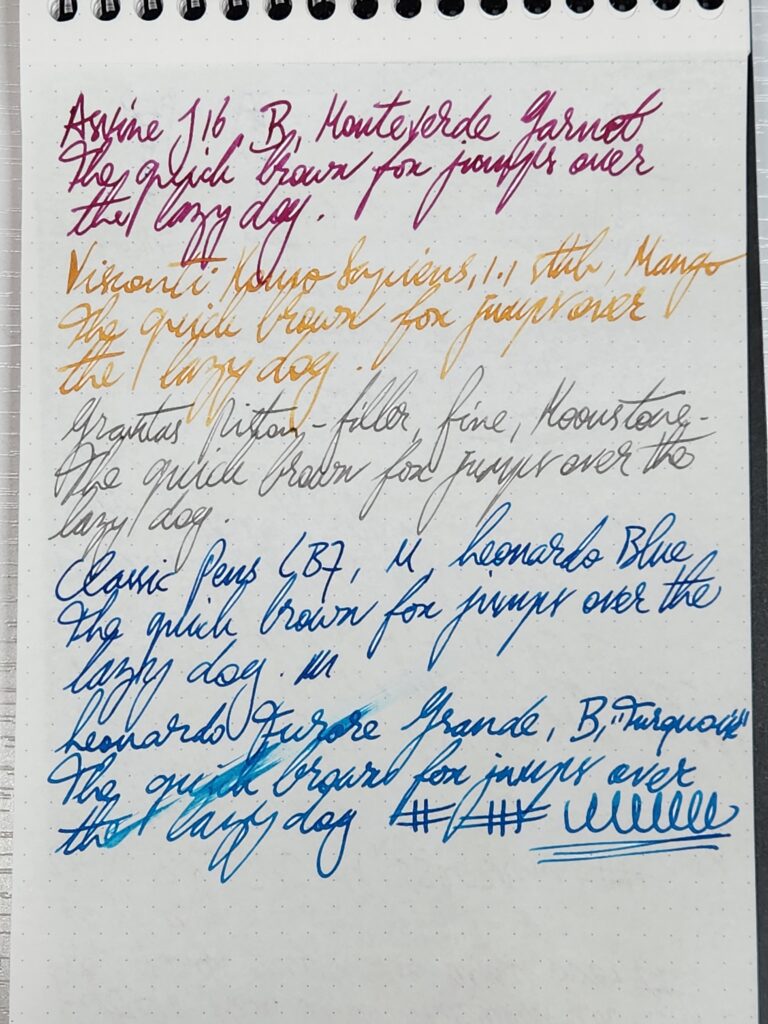 Asvine J16, B, Monteverde Garnet
The quick brown fox jumps over
the lazy dog.
Visconti Homo Sapiens, 1.1 stub, Mango
The quick brown fox jumps over
the lazy dog.
Gravitas Piston-filler, fine, Moonstone.
The quick brown fox jumps over the
lazy dog.
Classic Pens LB7, M, Leonardo Blue
The quick brown fox jumps over the
lazy dog.
Leonardo Furore Grande, B, "Turquoise"
The quick brown fox jumps over
the lazy dog